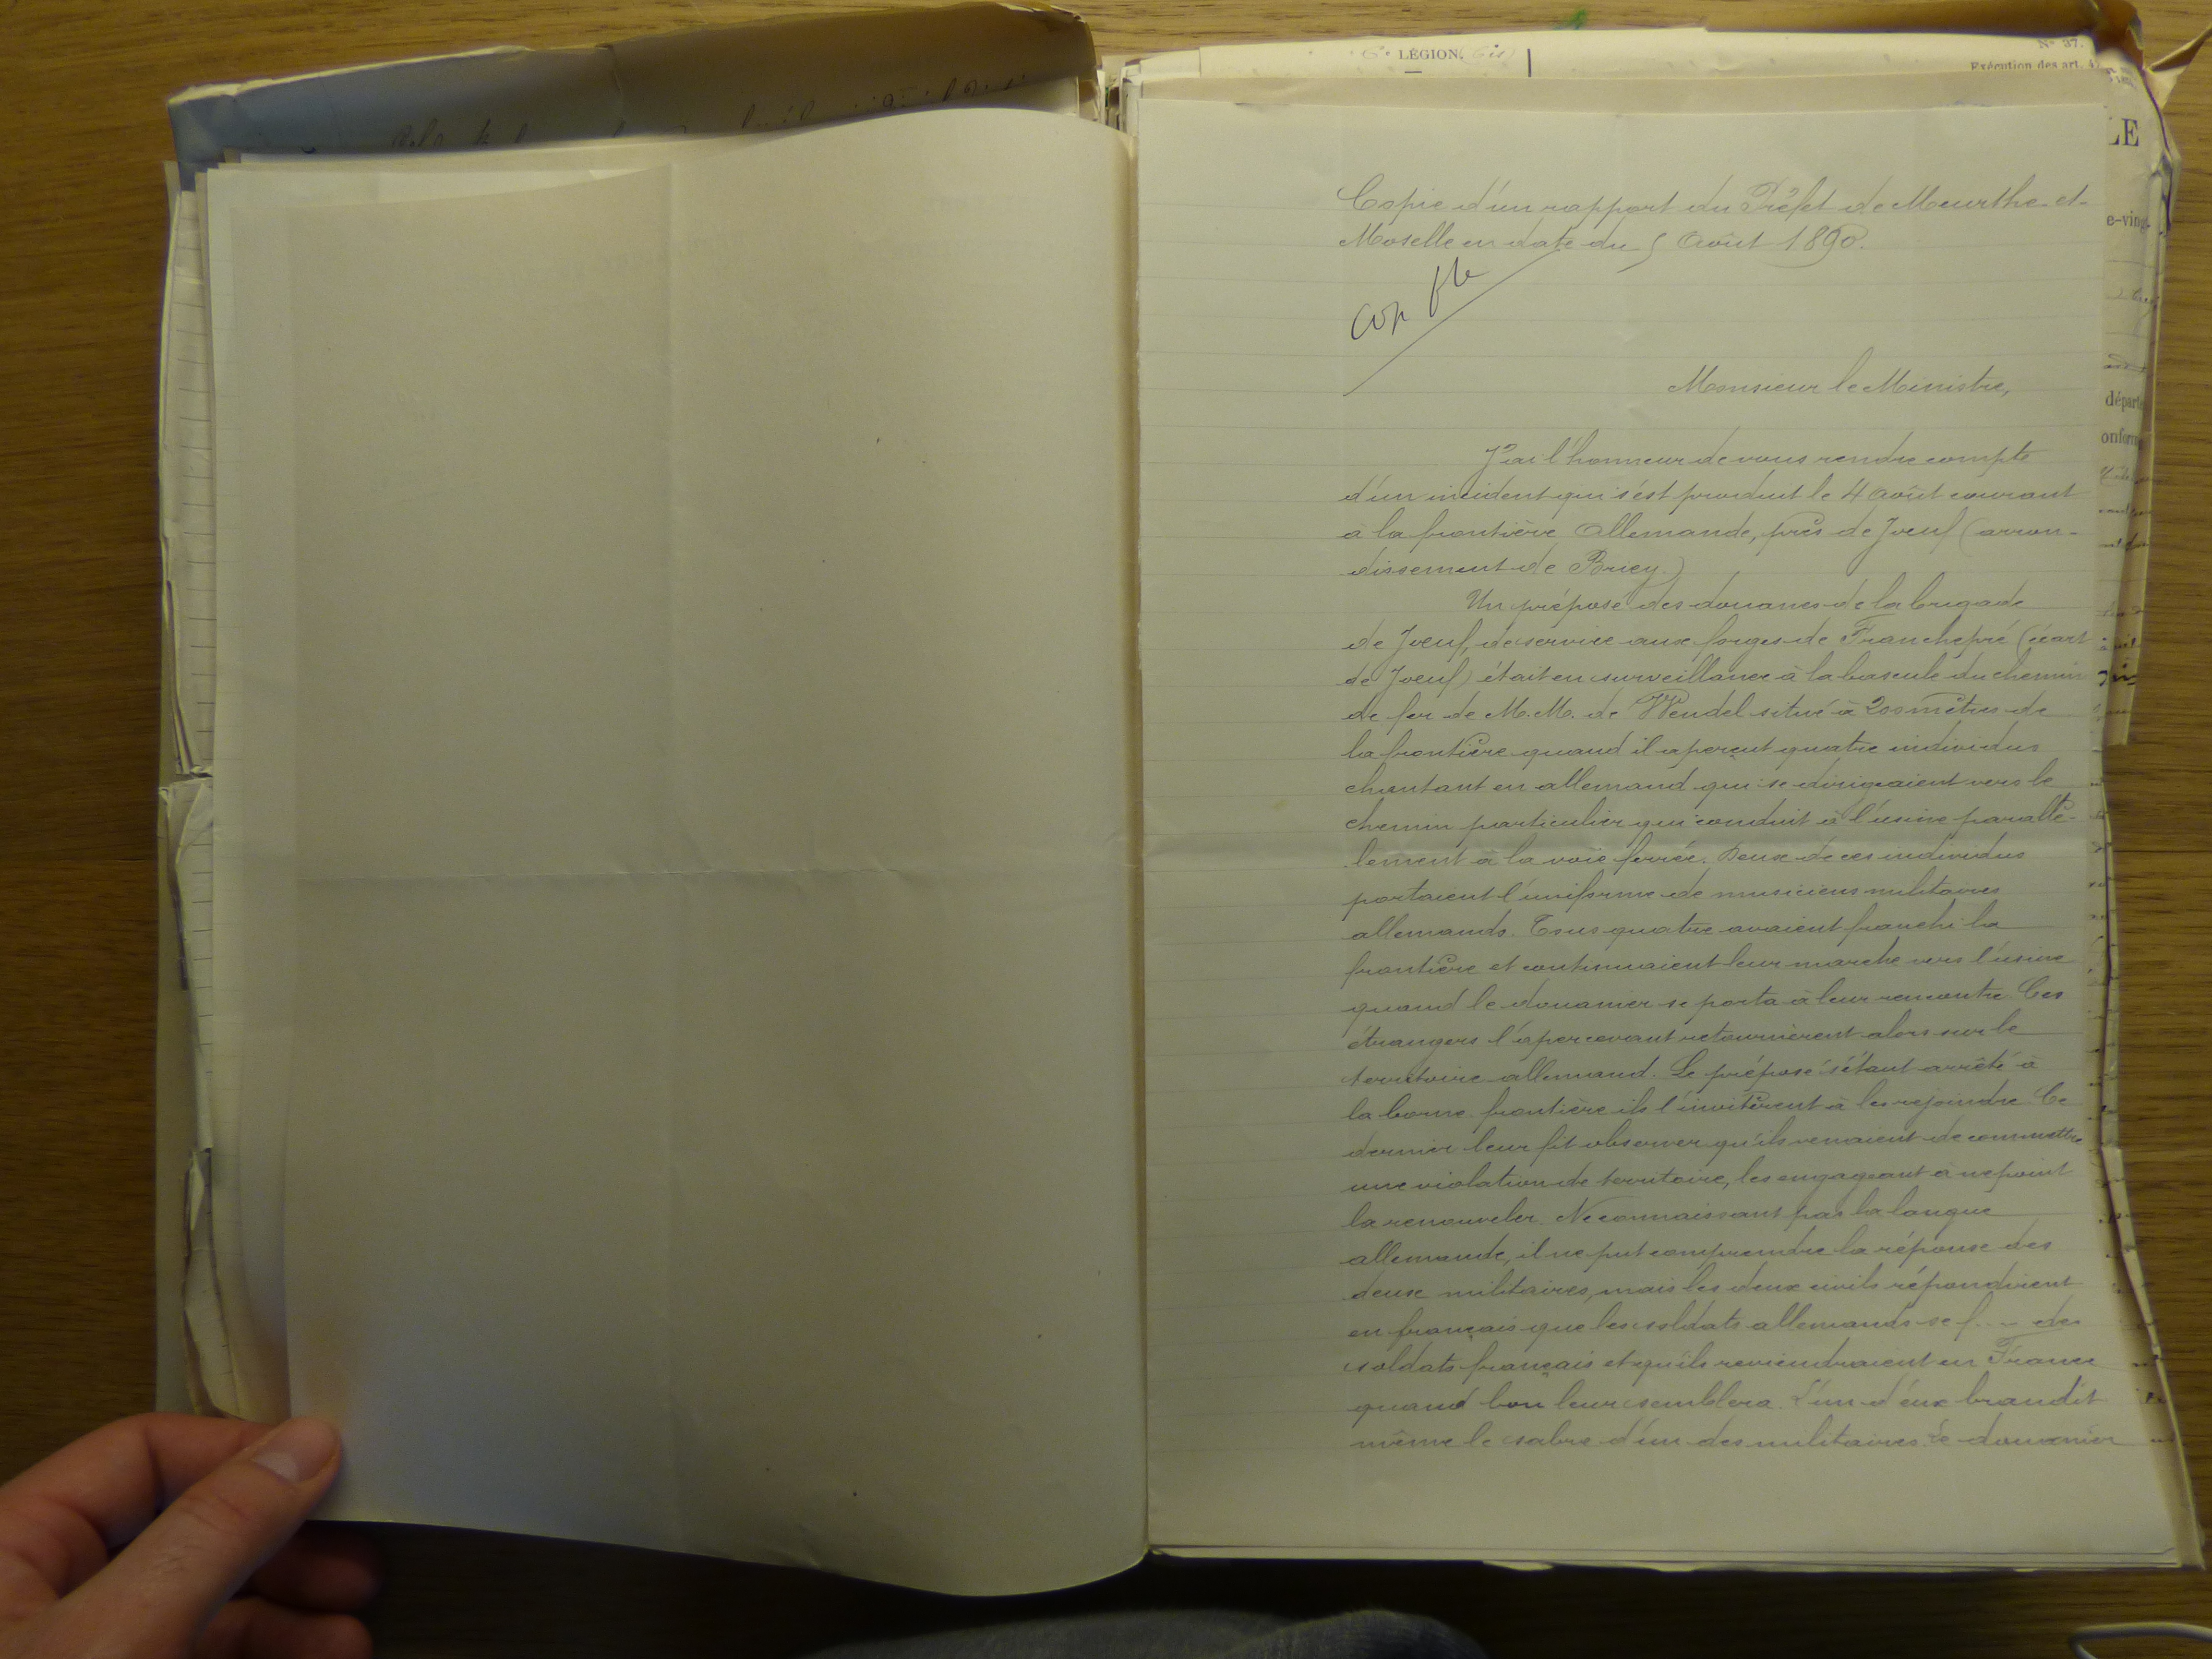 LÉGION.
N° 37.
Exécution des art.
LE
e-ving
départ
onform
Copie d'un rapport du Préfet de Meurthe-et-
Moselle en date du 5 Août 1890.
Monsieur le Ministre,
J'ai l'honneur de vous rendre compte
d'un incident qui s'est produit le 4 août courant
à la frontière Allemande, près de Joeuf (arron-
dissement de Briey.)
Un préposé des douanes de la brigade
de Joeuf, de service aux forges de Franchepré (écart
de Joeuf) était en surveillance à la bascule du chemin
de fer de M.M. de Wendel situé à 200 mètres de
la frontière quand il aperçut quatre individus
chantant en allemand qui se dirigeaient vers le
chemin particulier qui conduit à l'usine parallè-
lement à la voie ferrée. Deux de ces individus
portaient l'uniforme de musiciens militaires
allemands. Tous quatre avaient franchi la
frontière et continuaient leur marche vers l'usine
quand le douanier se porta à leur rencontre. Ces
étrangers l'apercevant retournèrent alors sur le
territoire allemand. Le préposé s'étant arrêté à
la borne frontière ils l'invitèrent à les rejoindre. Ce
dernier leur fit observer qu'ils venaient de commettre
une violation de territoire, les engageant à ne point
la renouveler. Ne connaissant pas la langue
allemande, il ne put comprendre la réponse des
deux militaires, mais les deux civils répondirent
en français que les soldats allemands se f.... des
soldats français et qu'ils reviendraient en France
quand bon leur semblera. L'un d'eux brandit
même le sabre d'un des militaires. Le douanier